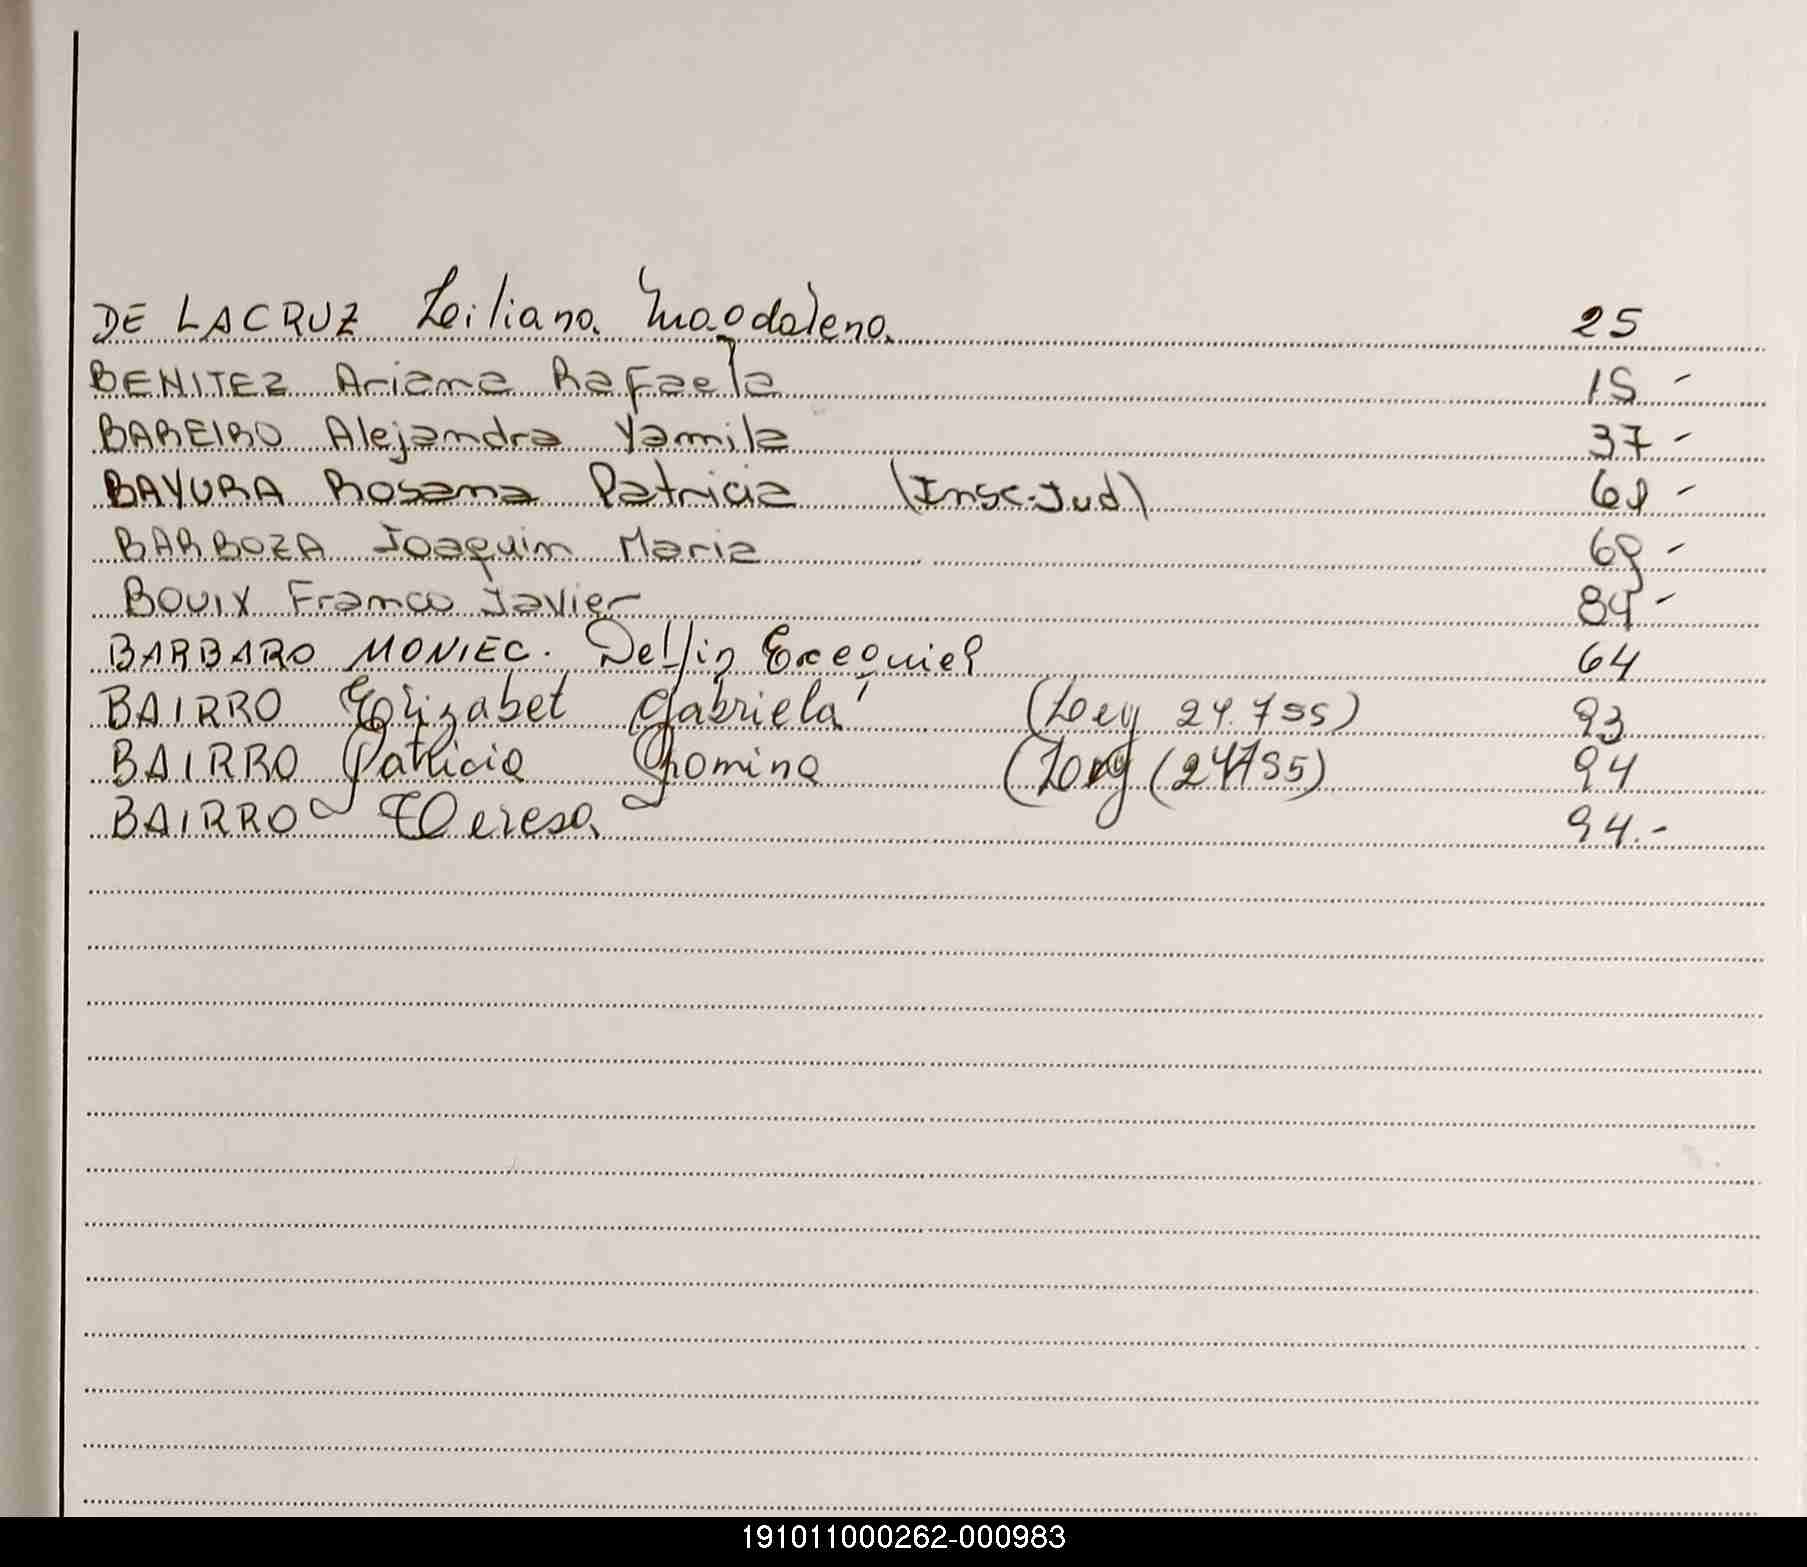 DE LACRUZ Leiliana Magdalena 25
BENITEZ Ariana Rafaela 15 -
BAREIRO Alejandra Yamila 37 -
BAYURA Rosana Patricia (Insc. Jud) 68 -
BARBOZA Joaquin Maria 69 -
BOUIX Franco Javier 84 -
BARBARO MONIEC. Delfin Exequiel 64
BAIRRO Elizabet Gabriela (Ley 24.755) 93
BAIRRO Patricia Romina (Ley (24755) 94
BAIRRO Teresa 94.-
191011000262-000983